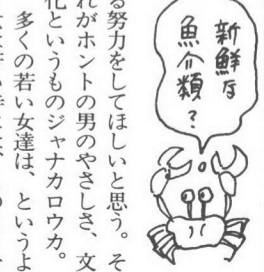 新鮮な
魚介類?
る努力をしてほしいと思う。そ
れがホントの男のやさしさ、文
化というものジャナカロウカ。
多くの若い女達は、というよ